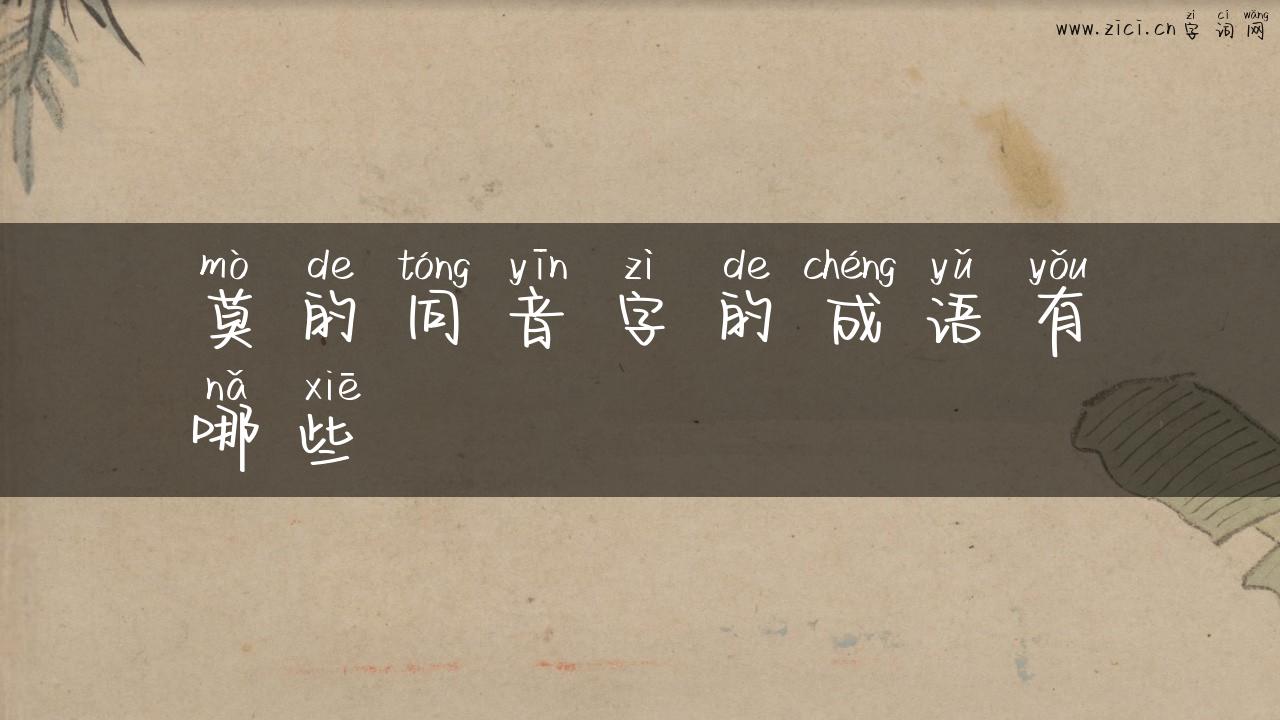 zì cí wǎng
www.zici.cn 字词网
mò de tóng yīn zì de chéng yǔ yǒu
莫的同音字的成语有
nǎ xiē
哪些